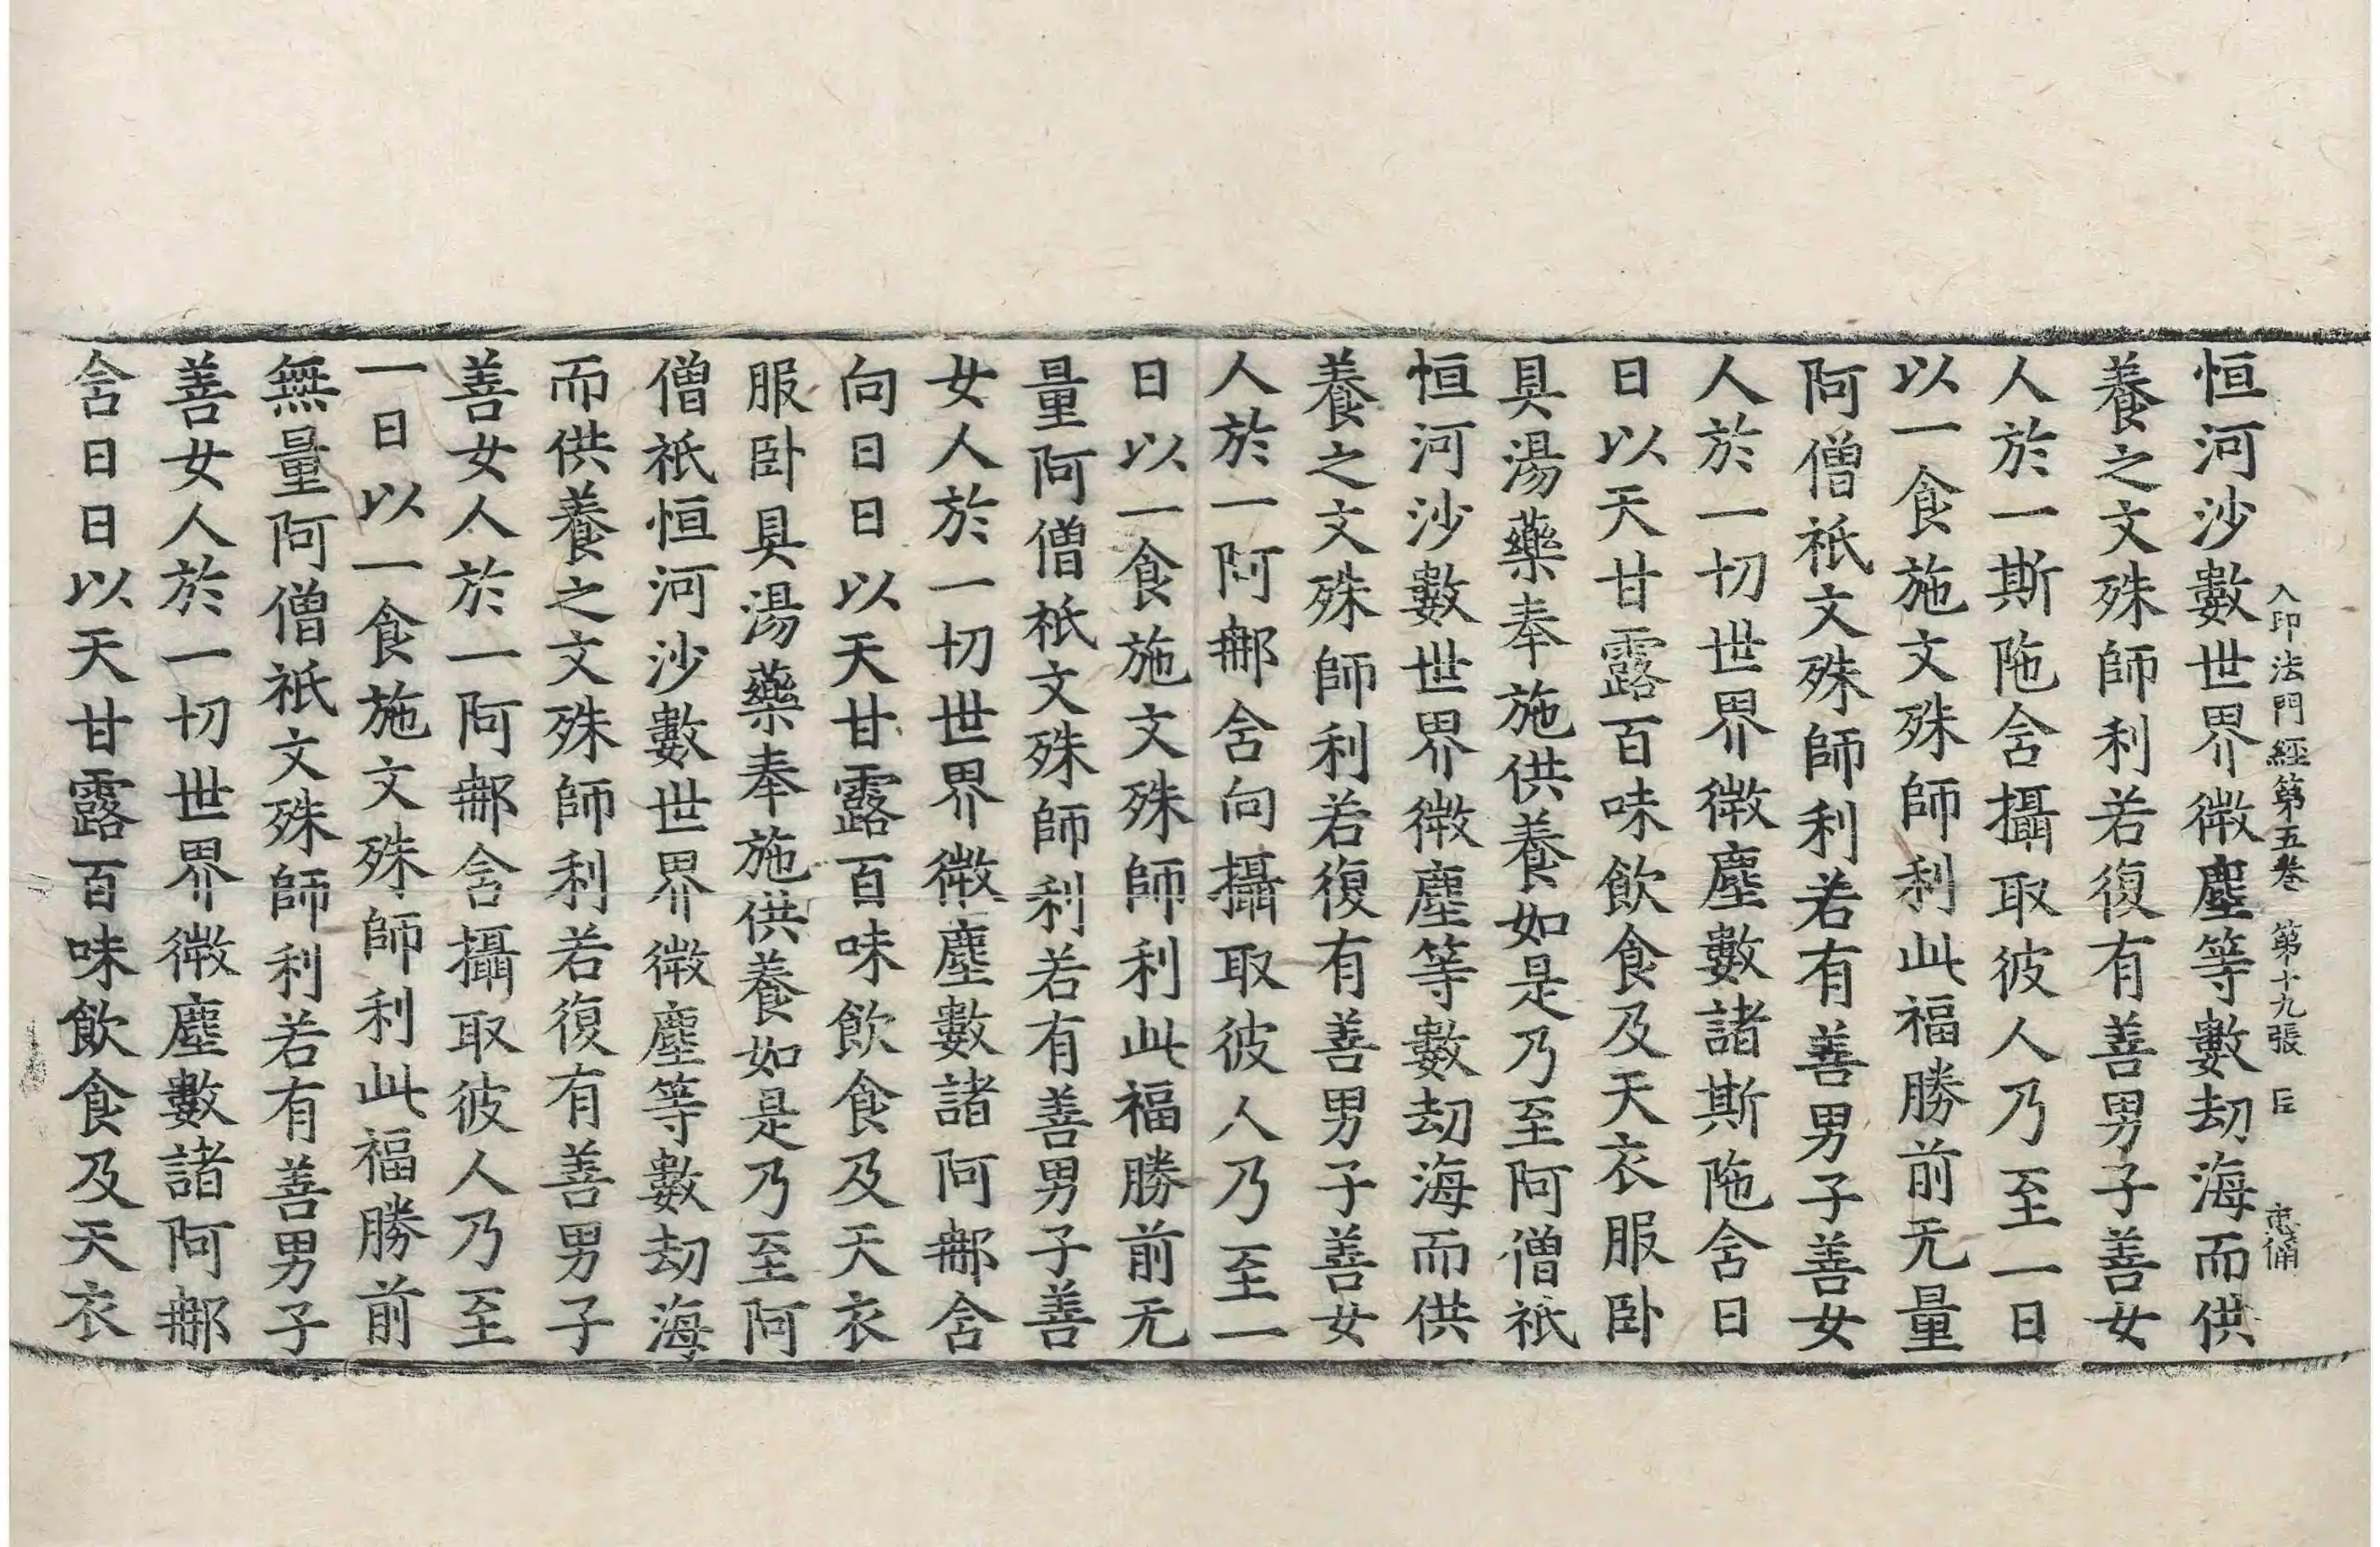 入印法門經第五卷 第十九張 臣 忠俑
恒河沙數世界微塵等數劫海而供
養之文殊師利若復有善男子善女
人於一斯陁含攝取彼人乃至一日
以一食施文殊師利此福勝前无量
阿僧祇文殊師利若有善男子善女
人於一切世界微塵數諸斯陁含日
日以天甘露百味飲食及天衣服卧
具湯藥奉施供養如是乃至阿僧祇
恒河沙數世界微塵等數劫海而供
養之文殊師利若復有善男子善女
人於一阿那含向攝取彼人乃至一
日以一食施文殊師利此福勝前无
量阿僧祇文殊師利若有善男子善
女人於一切世界微塵數諸阿那含
向日日以天甘露百味飲食及天衣
服卧具湯藥奉施供養如是乃至阿
僧祇恒河沙數世界微塵等數劫海
而供養之文殊師利若復有善男子
善女人於一阿那含攝取彼人乃至
一日以一食施文殊師利此福勝前
無量阿僧祇文殊師利若有善男子
善女人於一切世界微塵數諸阿那
含日日以天甘露百味飲食及天衣